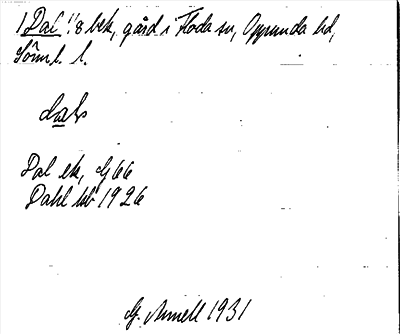 1 Dal 1/8 bek, gård i Floda sn, Oppunda hd,
Södm. l.
dals
Dal ek, G 66
Dahl kb 1926
G. Annell 1931